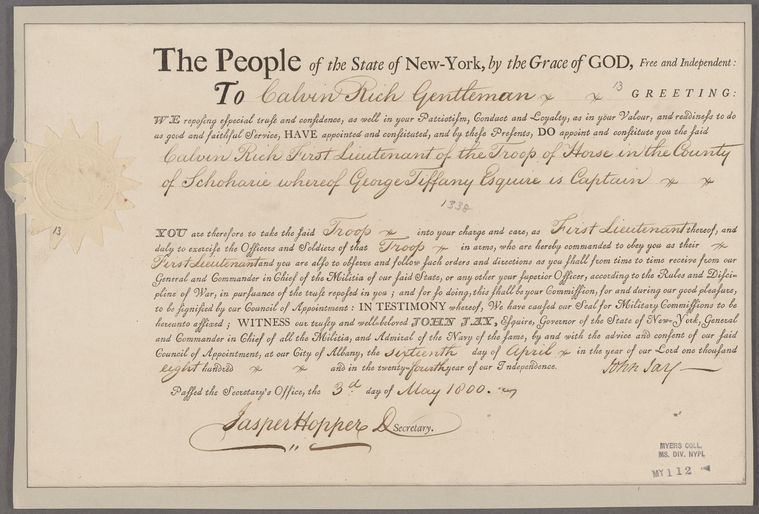 The People of the State of New-York, by the Grace of GOD, Free and Independent:
To Calvin Rich Gentleman 13 GREETING:
WE reposing especial trust and confidence, as well in your Patriotism, Conduct and Loyalty, as in your Valour, and readiness to do
us good and faithful Service, HAVE appointed and constituted, and by these Presents, DO appoint and constitute you the said
Calvin Rich First Lieutenant of the Troop of Horse in the County
of Schoharie whereof George Tiffany Esquire is Captain
1338
YOU are therefore to take the said Troop into your charge and care, as First Lieutenant thereof, and
duly to exercise the Officers and Soldiers of that Troop in arms, who are hereby commanded to obey you as their
First Lieutenant and you are also to observe and follow such orders and directions as you shall from time to time receive from our
General and Commander in Chief of the Militia of our said State, or any other your superior Officer, according to the Rules and Disci-
pline of War, in pursuance of the trust reposed in you; and for so doing, this shall be your Commission, for and during our good pleasure,
to be signified by our Council of Appointment: IN TESTIMONY whereof, We have caused our Seal for Military Commissions to be
hereunto affixed; WITNESS our trusty and well-beloved JOHN JAY, Esquire, Governor of the State of New-York, General
and Commander in Chief of all the Militia, and Admiral of the Navy of the same, by and with the advice and consent of our said
Council of Appointment, at our City of Albany, the sixteenth day of April in the year of our Lord one thousand
eight hundred and in the twenty-fourth year of our Independence. John Jay
Passed the Secretary's Office, the 3d day of May 1800.
Jasper Hopper D Secretary.
13
MYERS COLL.
MS. DIV. NYPL
MY 112